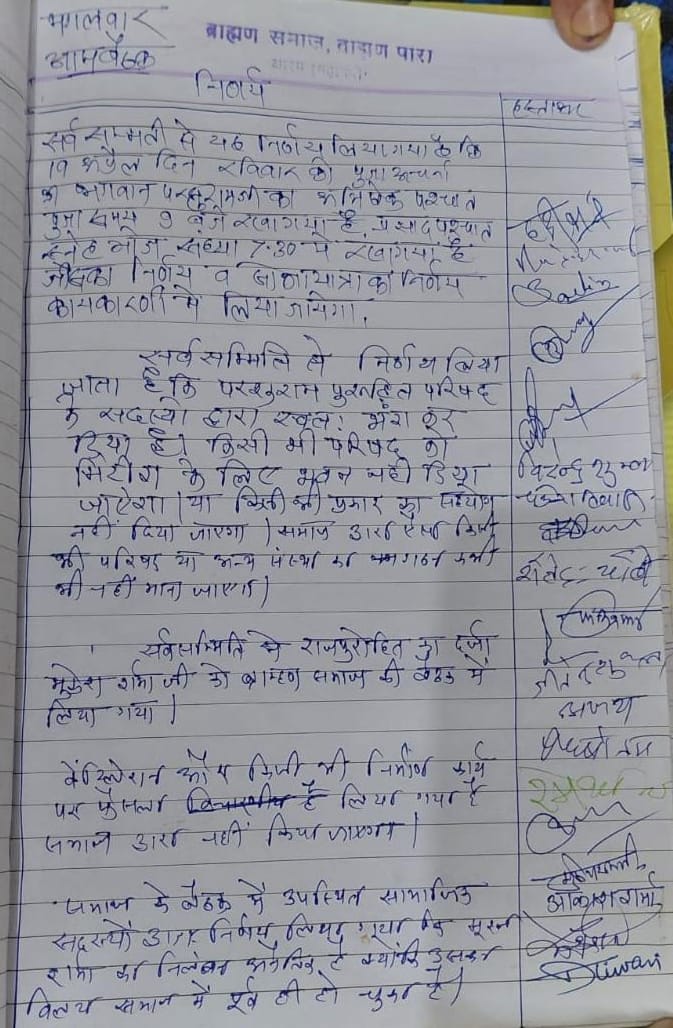 मंगलवार
आमबैठक
ब्राह्मण समाज, ब्राह्मण पारा
निर्णय
हस्ताक्षर
सर्व सम्मती से यह निर्णय लिया गया है कि
19 अप्रैल दिन रविवार को पुजा अर्चना
भगवान परशुरामजी का अभिषेक पश्चात
पुजा समय 9 बजे रखा गया है, प्रसाद पश्चात
स्नेह भोज संध्या 7:30 पे रखा गया है
जीसका निर्णय व शोभायात्रा का निर्णय
कार्यकारणी मे लिया जायेगा,
सर्व सम्मिति से निर्णय लिया
जाता है कि परशुराम पुरोहित परिषद
के सदस्यो द्वारा स्वत: भंग कर
दिया है। किसी भी परिषद को
मिटींग के लिए भवन नही दिया
जाऐगा। या किसी भी प्रकार का सहयोग
नहीं दिया जाएगा। समाज द्वारा ऐसा किसी
भी परिषद या अन्य संस्था का गठन कभी
भी नहीं माना जाएगा।
सर्वसम्मिति से राजपुरोहित का दर्जा
मुकेश शर्मा जी को ब्राम्हण समाज की बैठक में
लिया गया।
वेंटिलेशन और किसी भी निर्माण कार्य
पर फैसला लिया गया है
समाज द्वारा नहीं किया जाएगा।
समाज के बैठक में उपस्थित सामाजिक
सदस्यों द्वारा निर्णय लिया गया कि सूरज
शर्मा का निलंबन अनैतिक है क्योंकि उसका
विलय समाज में पूर्व ही हो चुका है।
विरेन्द्र शुक्ला
शैलेन्द्र
जीतेन्द्र शुक्ला
अजय
आकाश शर्मा
Tiwari